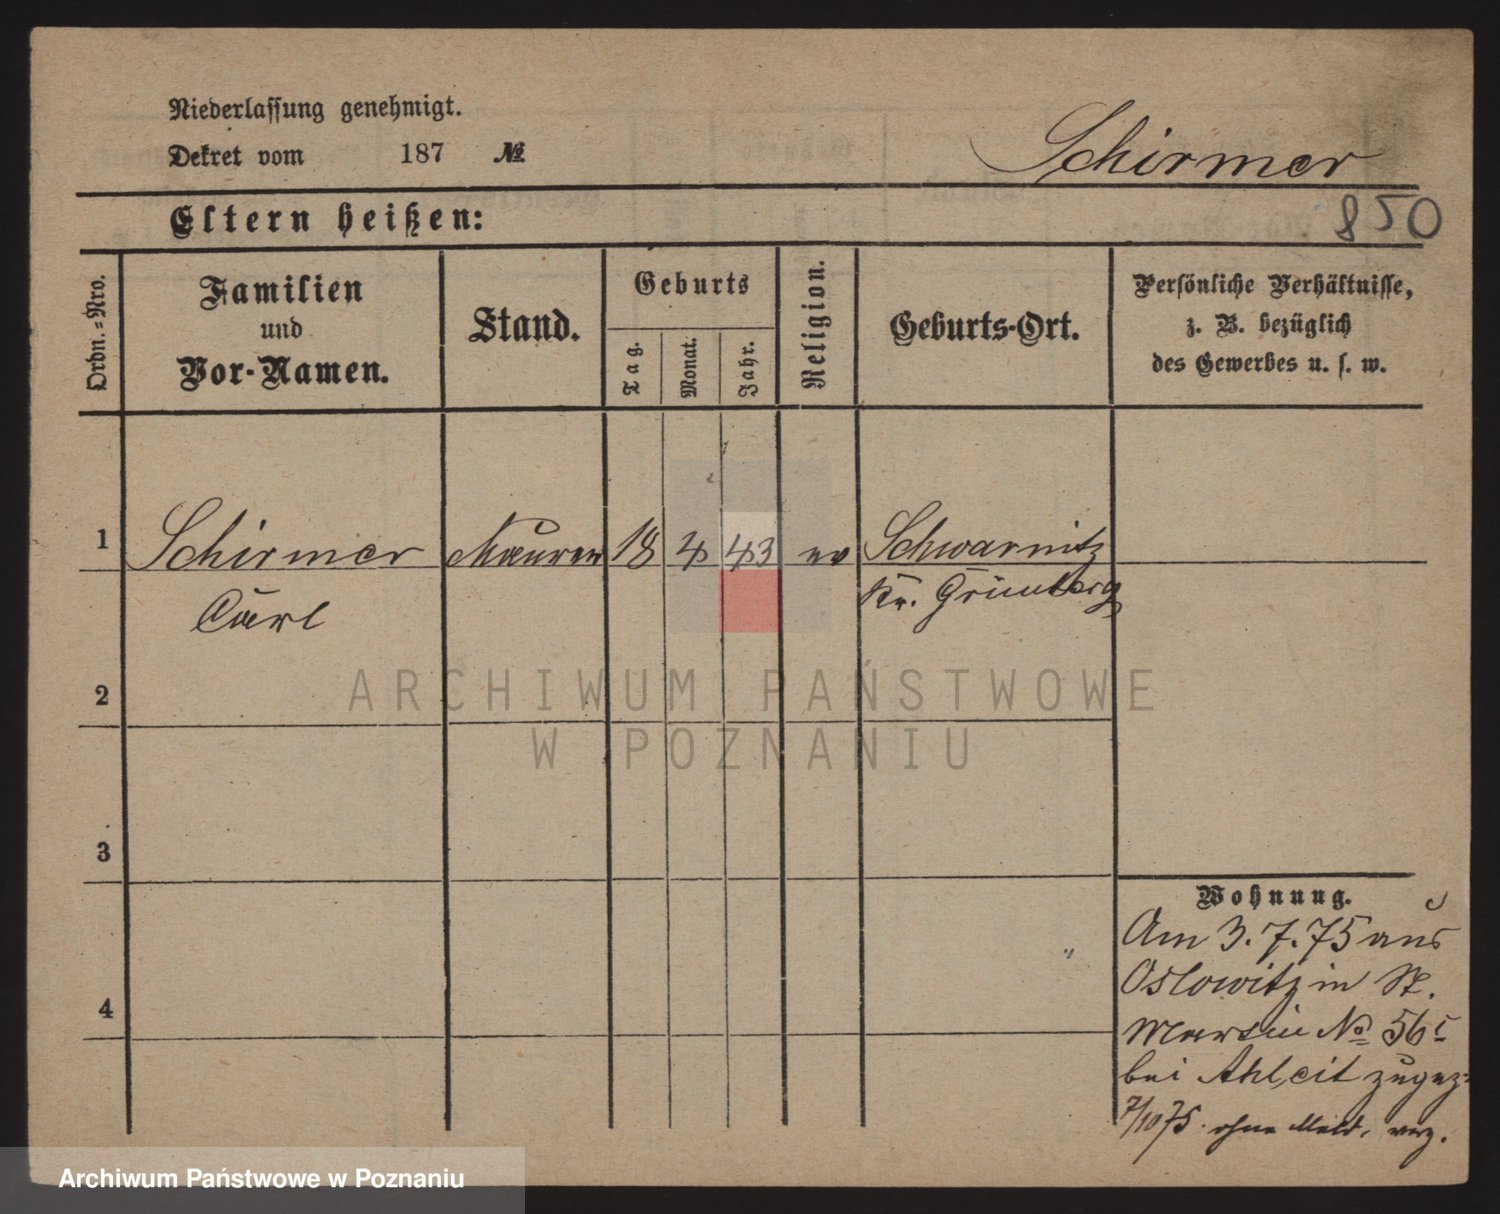 Niederlassung genehmigt.
Dekret vom 187 №
Schirmer
850
Eltern heißen:
Ordn.-Nro.
Familien
und
Vor-Namen.
Stand.
Geburts
Tag.
Monat.
Jahr.
Religion.
Geburts-Ort.
Persönliche Verhältnisse,
z. B. bezüglich
des Gewerbes u. s. w.
1 Schirmer Maurer 18 4 43 ev Schwarnitz
Carl Kr. Grünberg
2
3
4
Wohnung.
Am 3. 7. 75 aus
Oslowitz in St.
Martin No 56
bei zugez:
7/10 75. ohne Meld. verz.
ARCHIWUM PAŃSTWOWE
W POZNANIU
Archiwum Państwowe w Poznaniu